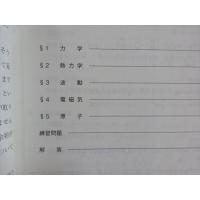 §1 力学
§2 熱力学
§3 波動
§4 電磁気
§5 原子
練習問題
解答